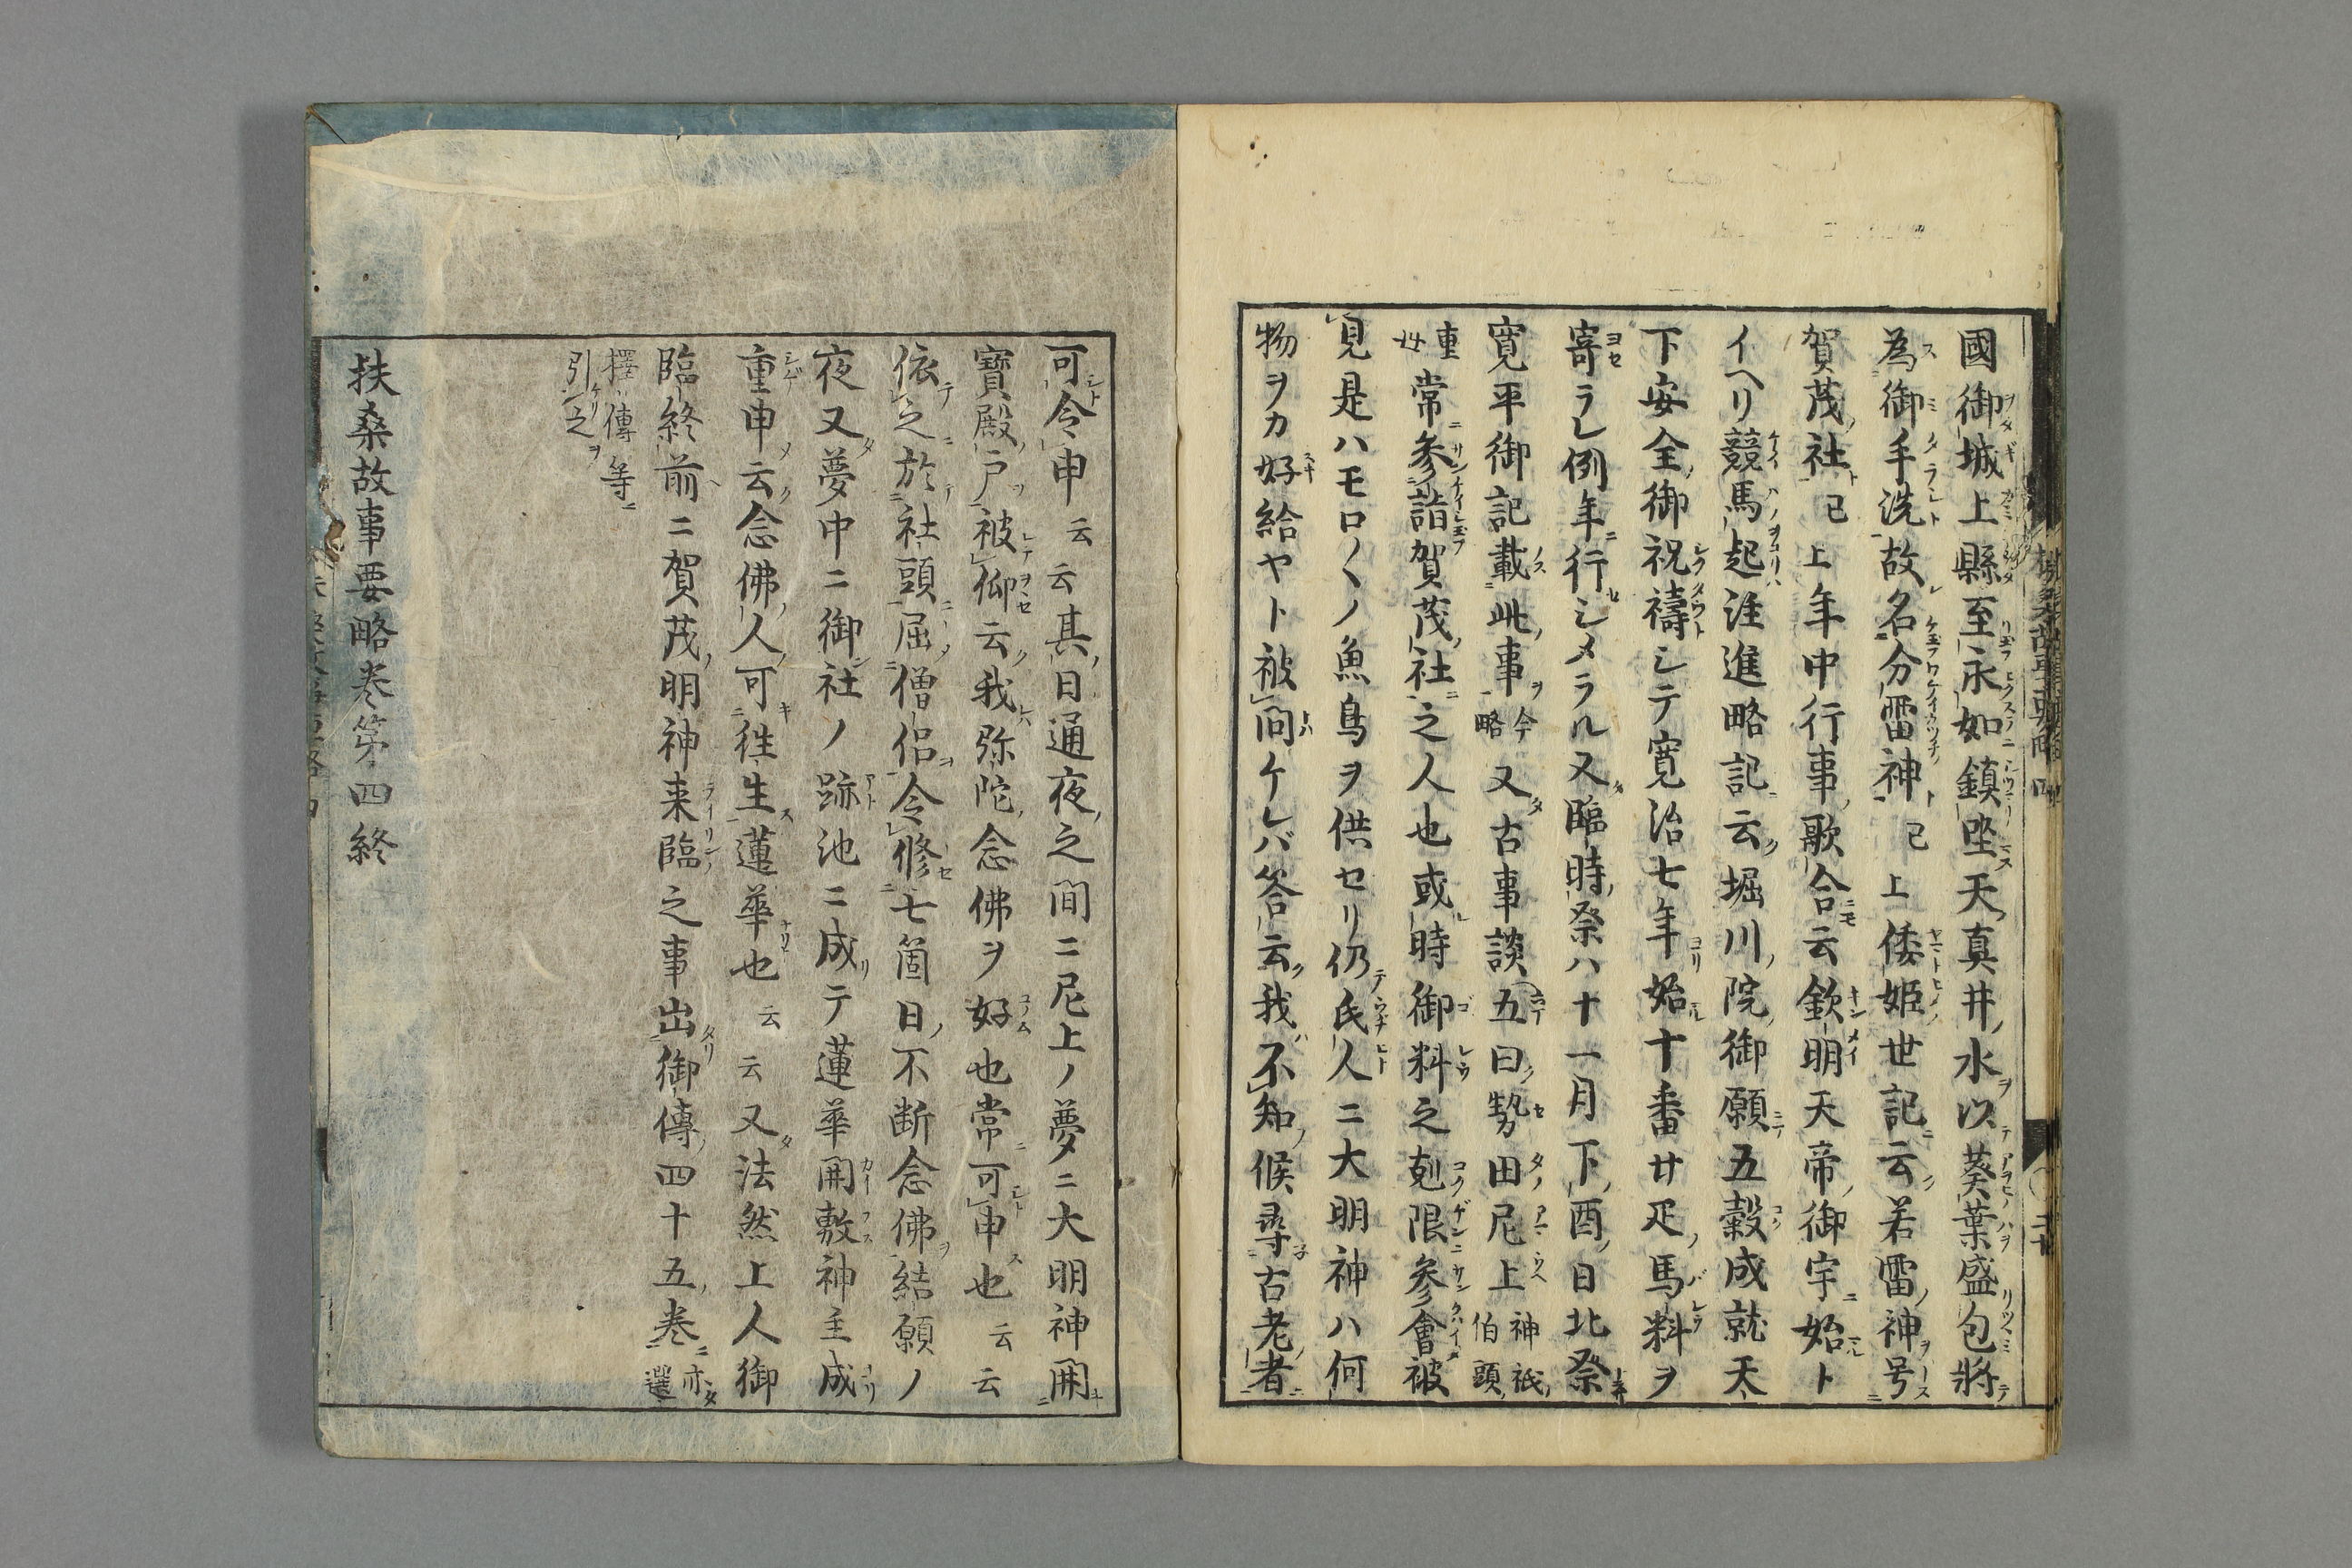 國御城上縣至永如鎮坐天真井水以葵葉盛包將
為御手洗故名分雷神已上倭姫世記云若雷神号
賀茂社已上年中行事歌合云欽明天帝御宇始ト
イヘリ競馬起注進略記云堀川院御願五穀成就天
下安全御祝禱シテ寛治七年始十番廿疋馬料ヲ
寄ラレ例年行シメラル又臨時祭ハ十一月下酉日北祭
寛平御記載此事今略又古事談五曰勢田尼上神祇伯頭
重母常参詣賀茂社之人也或時御料之剋限参會被
見是ハモロ〱ノ魚鳥ヲ供セリ仍氏人ニ大明神ハ何
物ヲカ好給ヤト被問ケレバ答云我不知候尋古老者
可令申云云其日通夜之間ニ尼上ノ夢ニ大明神開
寶殿戸被仰云我弥陀念佛ヲ好也常可申也云云
依之於社頭屈僧侶令修七箇日不断念佛結願ノ
夜又夢中ニ御社ノ跡池ニ成テ蓮華開敷神主成
重申云念佛人可往生蓮華也云云又法然上人御
臨終前ニ賀茂明神来臨之事出御傳四十五巻亦選
擇傳等引之
扶桑故事要略巻第四終